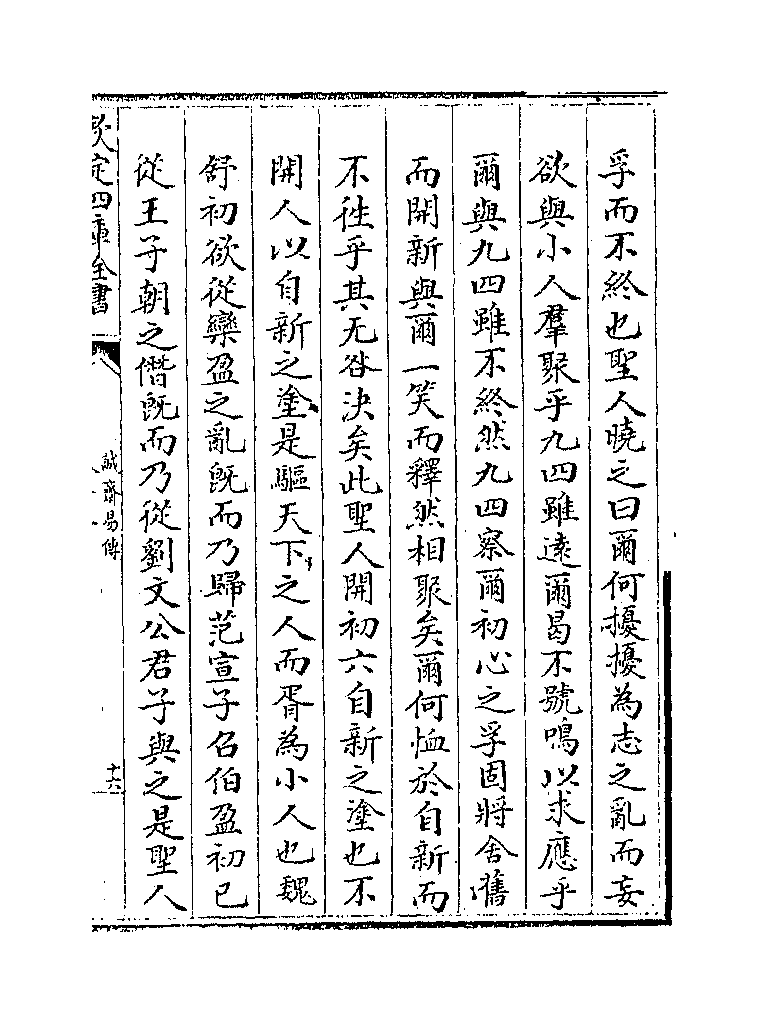 孚而不終也聖人曉之曰爾何擾擾為志之亂而妄
欲與小人羣聚乎九四雖逺爾曷不號鳴以求應乎
爾與九四雖不終然九四察爾初心之孚固將舍舊
而開新與爾一笑而釋然相聚矣爾何恤於自新而
不徃乎其无咎决矣此聖人開初六自新之塗也不
開人以自新之塗是驅天下之人而胥為小人也魏
舒初欲從欒盈之亂既而乃歸范宣子召伯盈初已
從王子朝之僭既而乃從劉文公君子與之是聖人
欽定四庫全書
誠齋易傳
十六